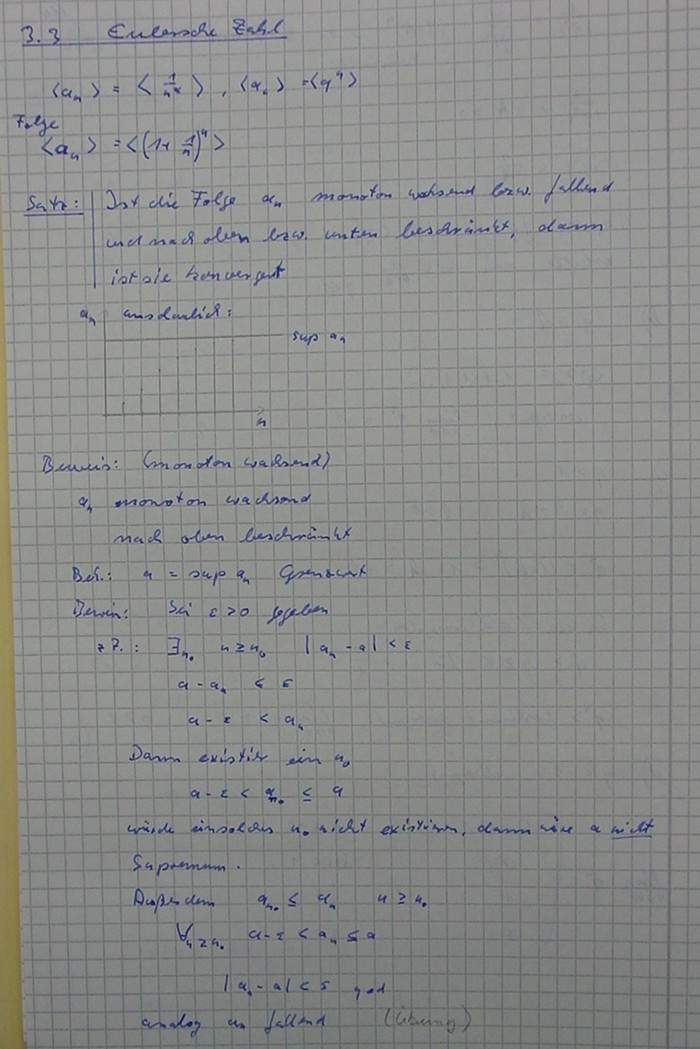 3.3 Eulersche Zahl
⟨aₙ⟩ = ⟨ 1/nˣ ⟩ , ⟨aₙ⟩ = ⟨qⁿ⟩
Folge
⟨aₙ⟩ = ⟨(1 + 1/n)ⁿ⟩
Satz: Ist die Folge aₙ monoton wachsend bzw. fallend
und nach oben bzw. unten beschränkt, dann
ist sie konvergent
aₙ anschaulich:
sup aₙ
n
Beweis: (monoton wachsend)
aₙ monoton wachsend
nach oben beschränkt
Beh.: a = sup aₙ Grenzwert
Beweis: Sei ε > 0 gegeben
z.Z.: ∃n₀ n ≥ n₀ |aₙ - a| < ε
a - aₙ < ε
a - ε < aₙ
Dann existiert ein n₀
a - ε < aₙ₀ ≤ a
würde ein solches n₀ nicht existieren, dann wäre a nicht
Supremum.
Außerdem aₙ₀ ≤ aₙ n ≥ n₀
∀n≥n₀ a - ε < aₙ ≤ a
|aₙ - a| < ε qed
analog aₙ fallend (Übung)